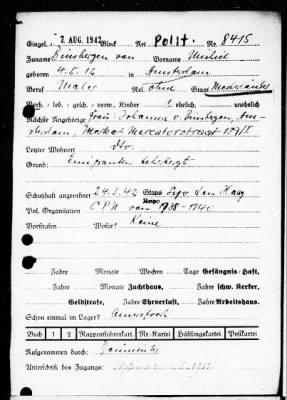 Eingel. 7. AUG. 1942 Block Art Polit. Nr. 8415
Zuname Dinsbergen van Vorname Michiel
geboren 4.5.12 in Amsterdam
Beruf Maler Rel. ohne Staat Niederländer
Verh. led. gesch. verw. Kinder ehelich, unehelich
Nächste Angehörige Frau: Johanna v. Dinsbergen, Am-
sterdam, Mercatorstraat 157/II
Letzter Wohnort Dto.
Grund: Emigranten
Schutzhaft angeordnet 24.3.42 Stapo Den Haag
Pol. Organisation C.P.N. von 1938 - 1940
Vorstrafen Wofür? Keine
Jahre Monate Wochen Tage Gefängnis/Haft,
Jahre Monate Zuchthaus, Jahre schw. Kerker,
Geldstrafe, Jahre Ehrverlust, Jahre Arbeitshaus.
Schon einmal im Lager? Amersfoort
Buch 1 2 Rapportführerkart. Nr.-Kartei Häftlingskartei Postkartei
Aufgenommen durch:
Unterschrift des Zugangs: